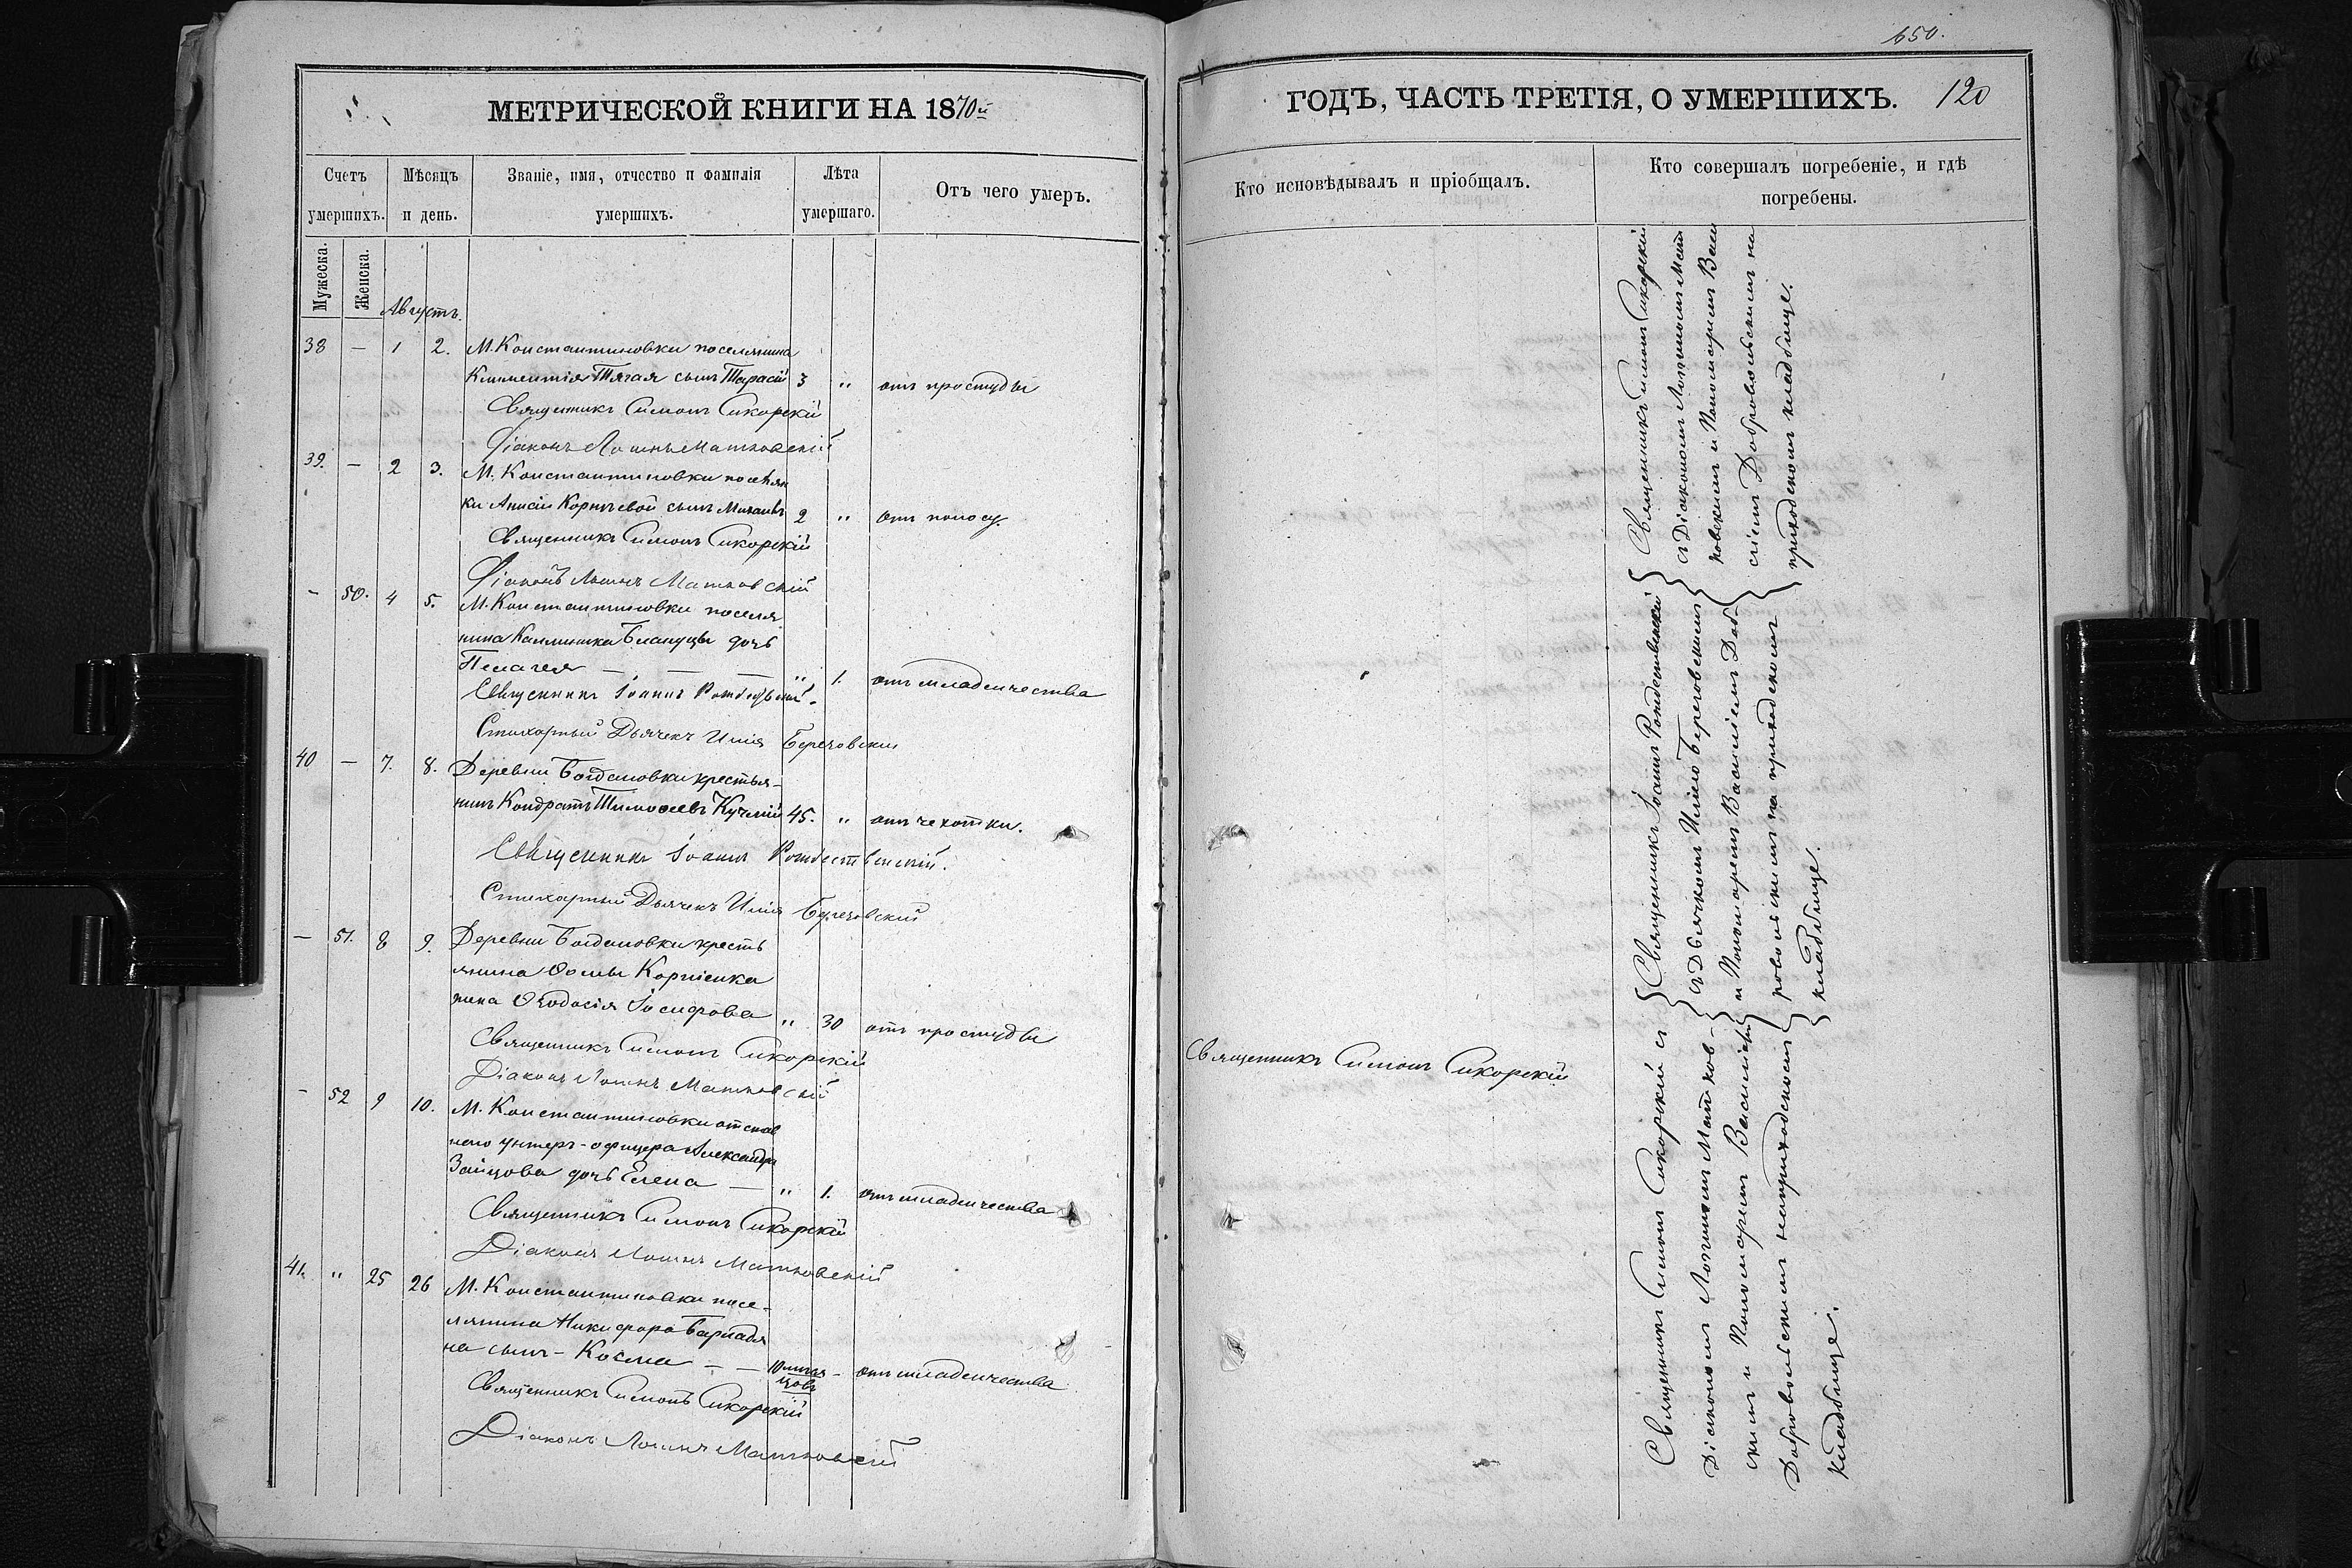 650.
МЕТРИЧЕСКОЙ КНИГИ НА 1870й
ГОДЪ, ЧАСТЬ ТРЕТІЯ, О УМЕРШИХЪ. 120
Счетъ умершихъ.
Мѣсяцъ и день.
Званіе, имя, отчество и фамилія умершихъ.
Лѣта умершаго.
Отъ чего умеръ.
Кто исповѣдывалъ и пріобщалъ.
Кто совершалъ погребеніе, и гдѣ погребены.
Мужеска.
Женска.
Августъ.
38 — 1 2. М. Константиновки поселянина
Климентія Тягая сынъ Тарасій 3 " отъ простуды
Священникъ Симонъ Сикорскій
Діаконъ Логинъ Матковскій
39. — 2 3. М. Константиновки поселян
ки Анисіи Корнѣевой сынъ Михаилъ 2 " отъ поносу.
Священникъ Симонъ Сикорскій
Діаконъ Логинъ Матковскій
- 50. 4 5. М. Константиновки поселя
нина Каллиника дочь
Пелагея — — " 1. отъ младенчества
Священникъ Іоаннъ Рождественскій.
Стихарный Дьячекъ Илія Березовскій
40 — 7. 8. Деревни Богдановки крестья-
нинъ Кондратъ Тимоѳеевъ Кучмій 45. " отъ чехотки.
Священникъ Іоаннъ Рождественскій.
Стихарный Дьячекъ Илія Березовскій
— 51. 8 9. Деревни Богдановки кресть
янина Ѳомы Корніенка
жена Ѳеодосія Іосифова " 30 отъ простуды
Священникъ Симонъ Сикорскій
Діаконъ Логинъ Матковскій
Священникъ Симонъ Сикорскій
- 52 9 10. М. Константиновки отстав
наго унтеръ-офицера Александра
Зайцова дочь Елена — " 1. отъ младенчества
Священникъ Симонъ Сикорскій
Діаконъ Логинъ Матковскій
41. " 25 26 М. Константиновки посе-
лянина Никифора
на сынъ - Косма — — 10 мѣся
цовъ - отъ младенчества
Священникъ Симонъ Сикорскій
Діаконъ Логинъ Матковскій
Священникъ Симонъ Сикорскій
съ Діакономъ Логиномъ Мат
ковскимъ и Пономаремъ Васи
ліемъ Добровольскимъ на
приходскомъ кладбище.
Священникъ Іоаннъ Рождественскій
съ Дьячкомъ Иліею Березовскимъ
и Пономаремъ Василіемъ Доб
ровольскимъ на приходскомъ
кладбище.
Священникъ Симонъ Сикорскій съ
Діакономъ Логиномъ Матков-
скимъ и Пономаремъ Василіемъ
Добровольскимъ на приходскомъ
кладбище.